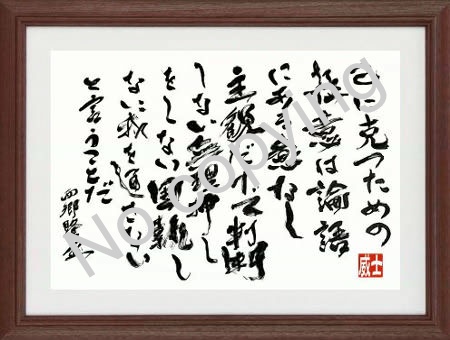 己に克つための
極意は論語
にある意なし
主観だけで判断
しない無理押し
をしない固執し
ない我を通さない
と言うことだ
西郷隆盛
威士
No copying